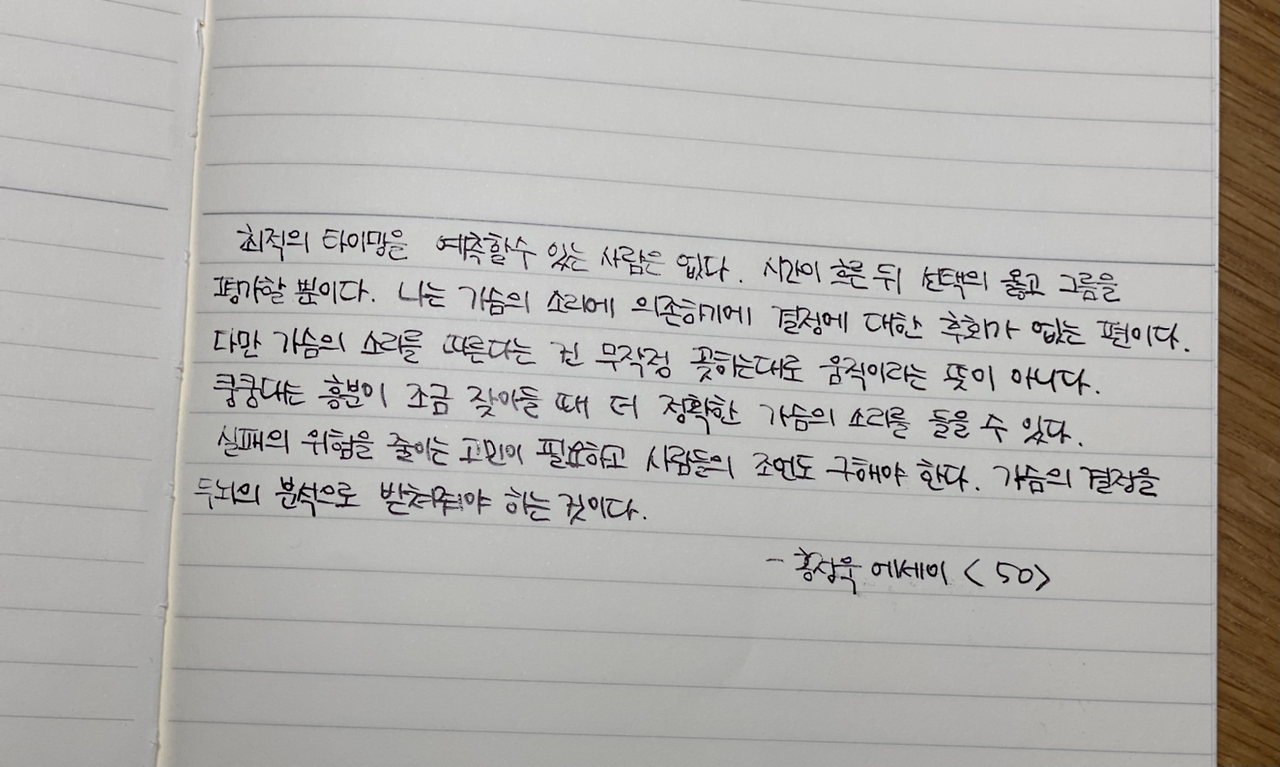 최적의 타이밍을 예측할수 있는 사람은 없다. 시간이 흐른 뒤 선택의 옳고 그름을
평가할 뿐이다. 나는 가슴의 소리에 의존하기에 결정에 대한 후회가 없는 편이다.
다만 가슴의 소리를 따른다는 건 무작정 꽂히는대로 움직이라는 뜻이 아니다.
쿵쿵대는 흥분이 조금 잦아들 때 더 정확한 가슴의 소리를 들을 수 있다.
실패의 위험을 줄이는 고민이 필요하고 사람들의 조언도 구해야 한다. 가슴의 결정을
두뇌의 분석으로 받쳐줘야 하는 것이다.
- 에세이 <50>